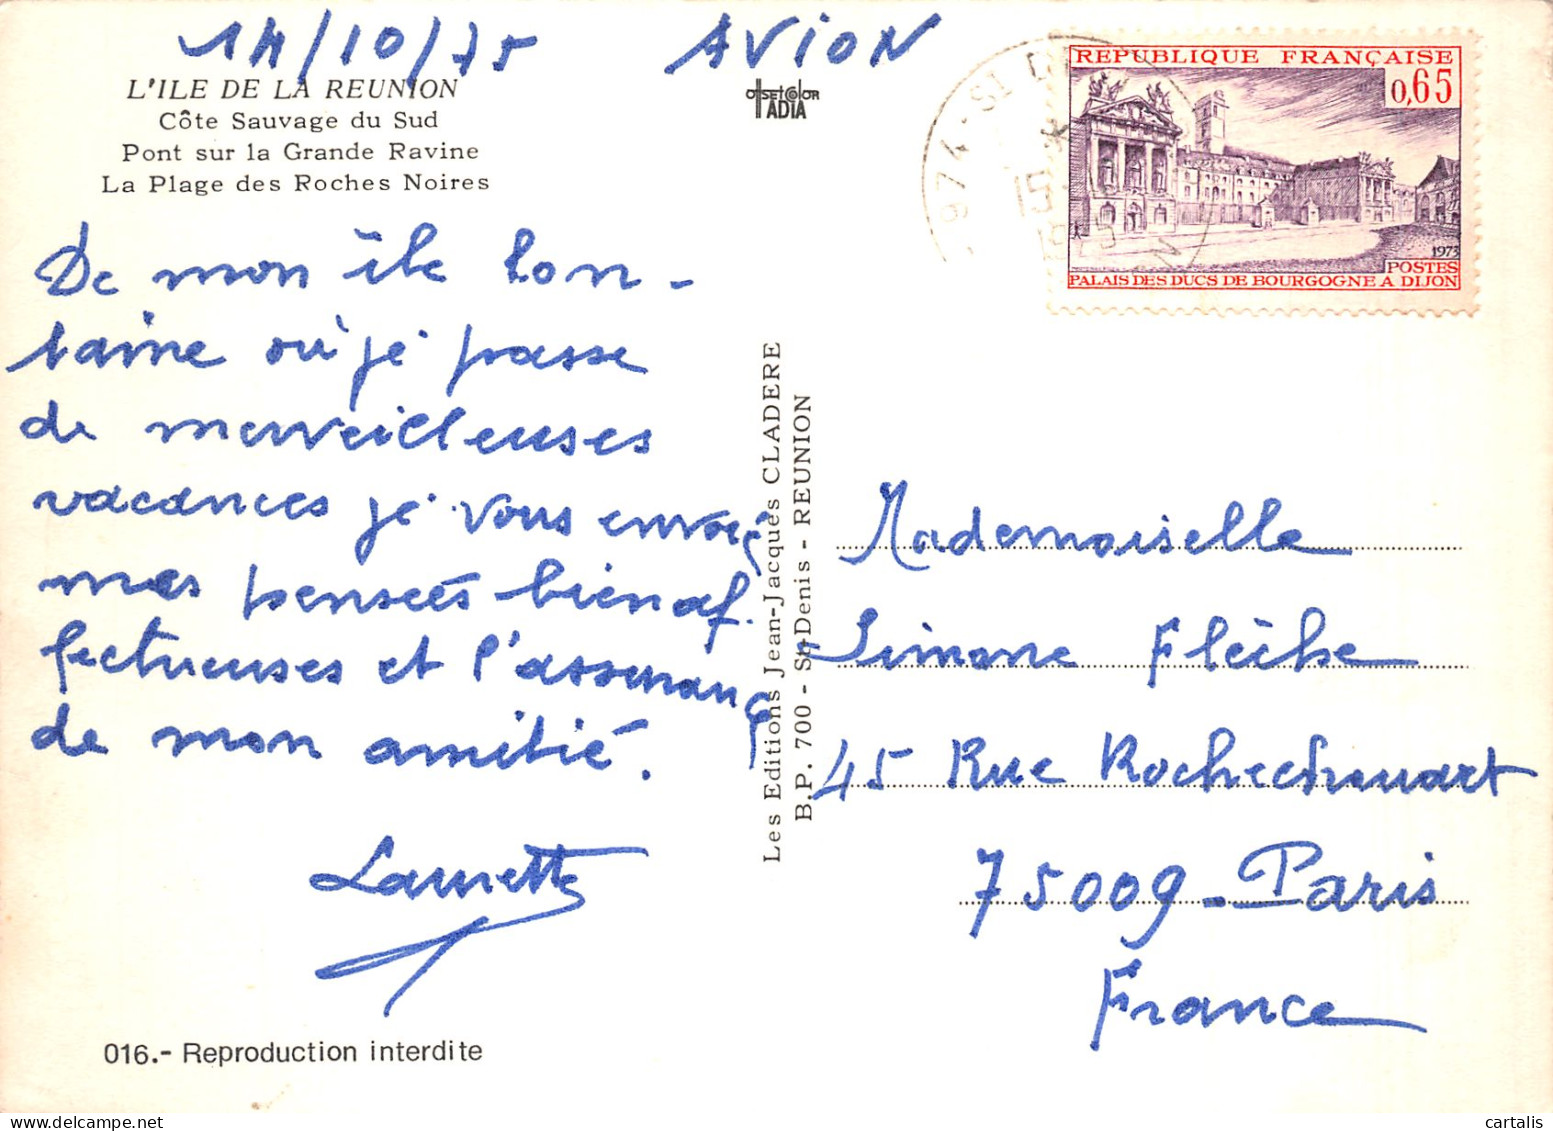 14/10/75 AVION
L'ILE DE LA REUNION
Côte Sauvage du Sud
Pont sur la Grande Ravine
La Plage des Roches Noires
offset color
ADIA
974 - ST D
15
REPUBLIQUE FRANÇAISE
0,65
1973
POSTES
PALAIS DES DUCS DE BOURGOGNE A DIJON
De mon île loin-
taine où je passe
de merveilleuses
vacances je vous envoie
mes pensées bien af.
fectueuses et l'assurance
de mon amitié.
Laurette
016.- Reproduction interdite
Les Editions Jean-Jacques CLADERE
B.P. 700 - St-Denis - REUNION
Mademoiselle
Simone Flèche
45 Rue Rochechouart
75009 - Paris
France
cartalis